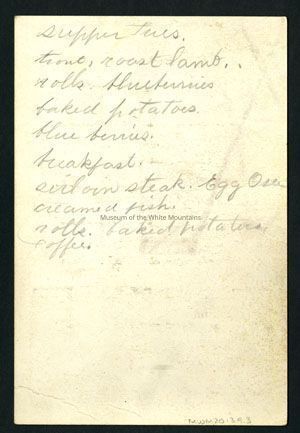 supper Tues.
trout, roast lamb..
rolls. blueberries
baked potatoes.
blue berries.
breakfast.
sirloin steak. Egg
creamed fish.
Museum of the White Mountains
rolls. baked potatoes,
coffee
MWM2013.9.3